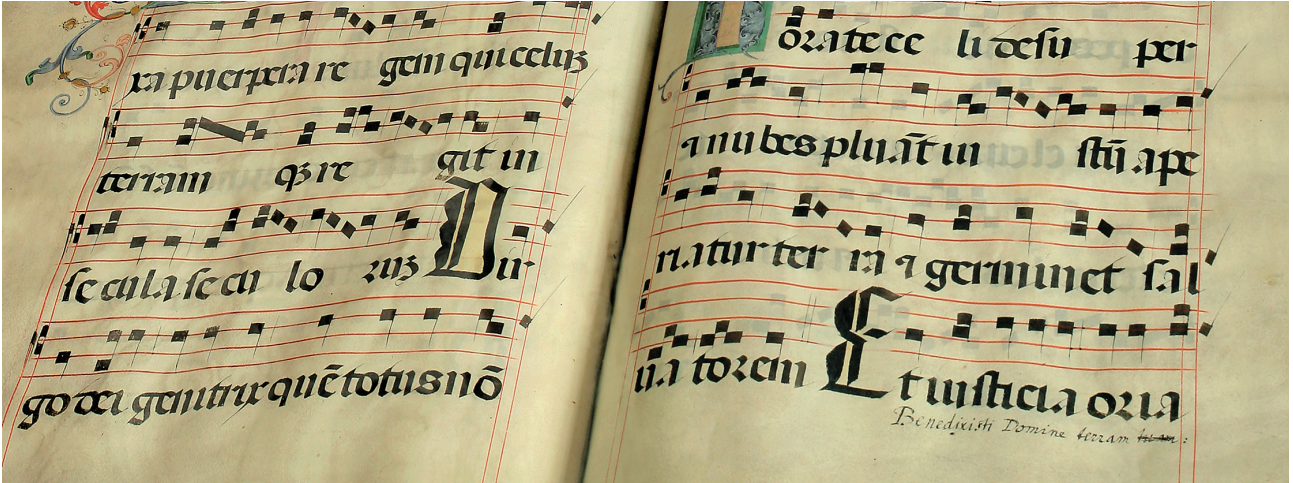 xa puerpera re gem qui celuz
terram qz re git in
se cula se cu lo ruz Vir
go dei genitrix quē totus nō
orate ce li desu per
⁊ nu bes pluāt iu stū ape
riatur ter ra ⁊ germinet sal
ua torem Et iusticia oria
Benedixisti Domine terram tuam :